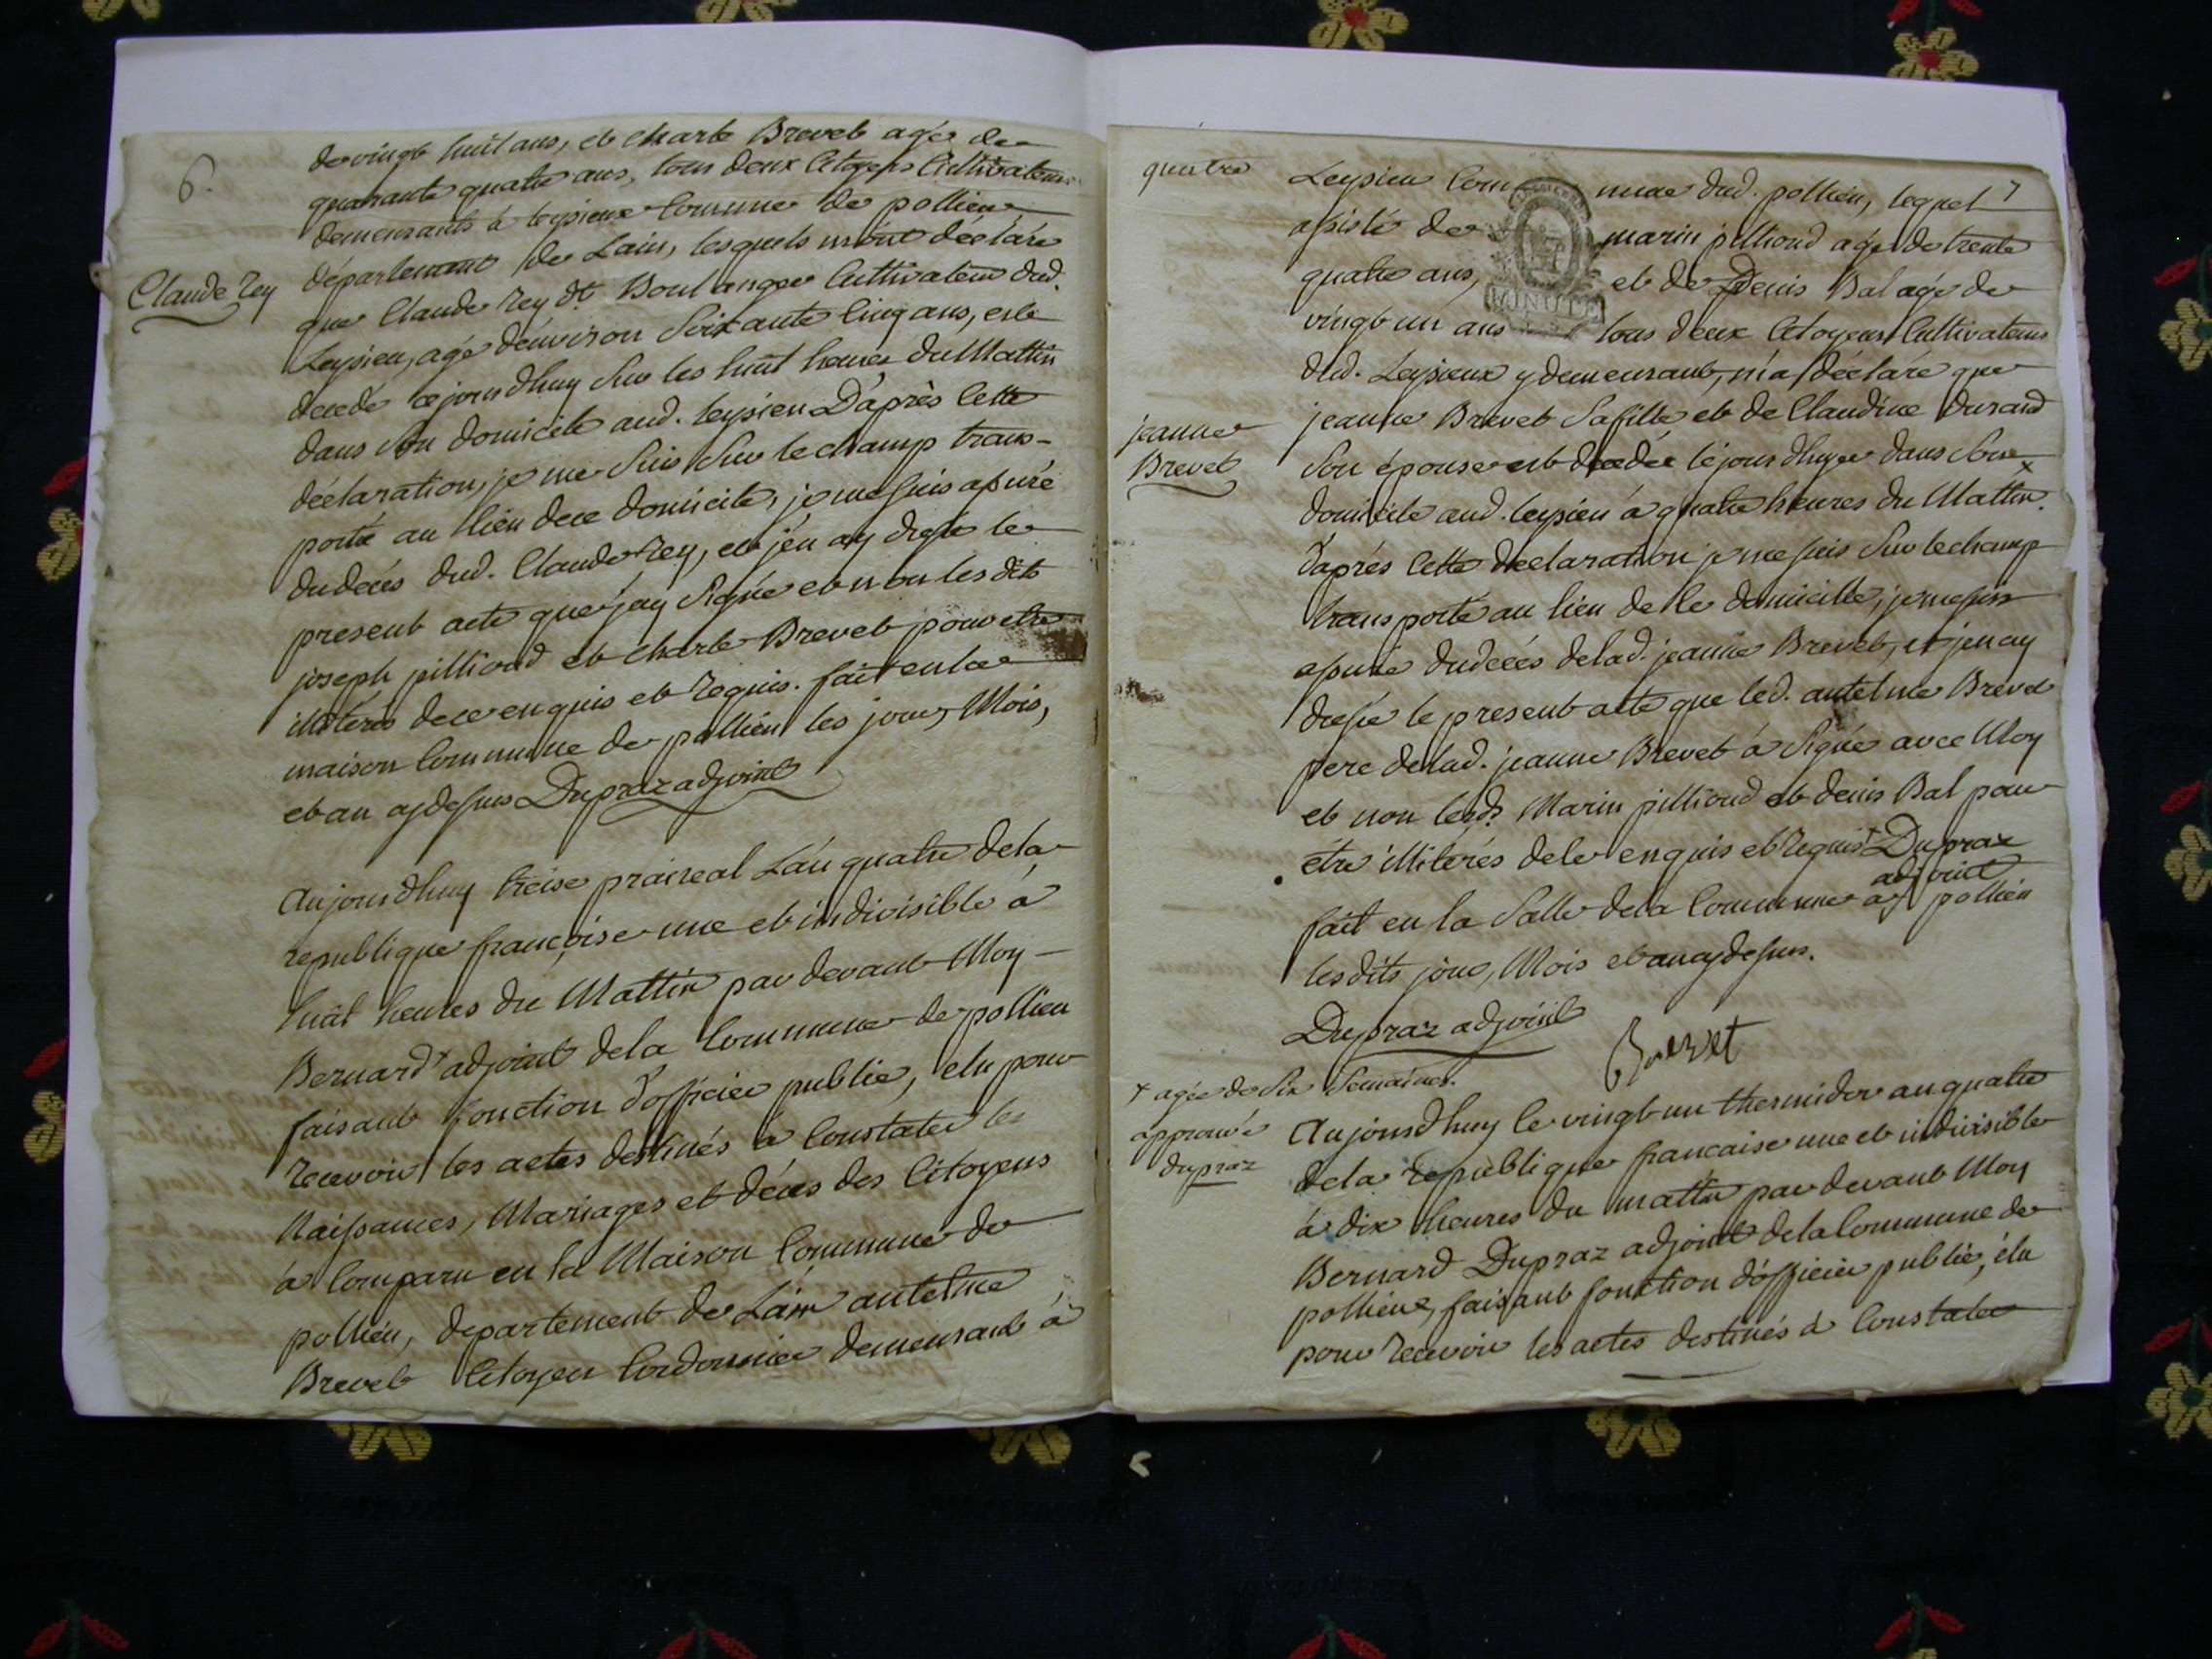 6.
de vingt huit ans, et charle Brevet agé de
quarante quatre ans, tous deux Citoyens Cultivateurs
demeurants à leysieux Commune de pollieu
département de Lain, lesquels m'ont déclaré
Claude Rey
que Claude rey dt. Boulanger Cultivateur dud.
Leysieu, agé d'environ Soixante Cinq ans, est
decedé ce jourdhuy Sur les huit heures du Mattin
dans Son domicile aud. leysieu D'après Cette
déclaration, je me Suis Sur le champ trans-
porté au lieu de ce domicile, je me suis assuré
du decès dud. Claude rey, et j'en ay dressé le
present acte que j'ay Signé et non les dits
joseph pilliond et charle Brevet pour etre
illiterés de ce enquis et requis. fait en la
maison Commune de pollieu les jour, Mois,
et an cy dessus Dupraz adjoint
Aujourdhuy treise praireal L'an quatre de la
republique françoise une et indivisible à
huit heures du Mattin par devant Moy
Bernard + adjoint de la Commune de pollieu
faisant fonction d'officier public, elu pour
recevoir les actes destinés à Constater les
Naissances, Mariages et décès des Citoyens
à Comparu en la Maison Commune de
pollieu, departement de L'ain antelme
Brevet Citoyen Cordonnier demeurant à
quatre
7
Leysieu Commune dud. pollieu, lequel
assisté de marin pilliond agé de trente
quatre ans, et de Denis Bal agé de
MINUTE
vingt un ans tous deux Citoyens Cultivateurs
dud. Leysieux y demeurant, m'a déclaré que
jeanne
Brevet
jeanne Brevet Sa fille et de Claudine durand
Son épouse est decedée cejourdhuy dans Son +
domicile aud. leysieu à quatre heures du Mattin.
d'aprés Cette declaration je me suis Sur le champ
transporté au lieu de Ce domicille, je me suis
assuré du decés de lad. jeanne Brevet, et j'en ay
dressé le present acte que led. antelme Brevet
pere de lad. jeanne Brevet à Signé avec Moy
et non lesds. Marin pilliond et denis Bal pour
etre illiterés de Ce enquis et requis + Dupraz
adjoint
fait en la Salle de la Commune à pollieu
lesdits jour, Mois et an cy dessus.
Dupraz adjoint
Brevet
+ agée de Six Semaines.
approuvé
dupraz
Aujourdhuy le vingt un thermidor an quatre
de la republique francaise une et indivisible
à dix heures du mattin par devant Moy
Bernard Dupraz adjoint de la Commune de
pollieu, faisant fonction d'officier public, élu
pour recevoir les actes destinés à Constater